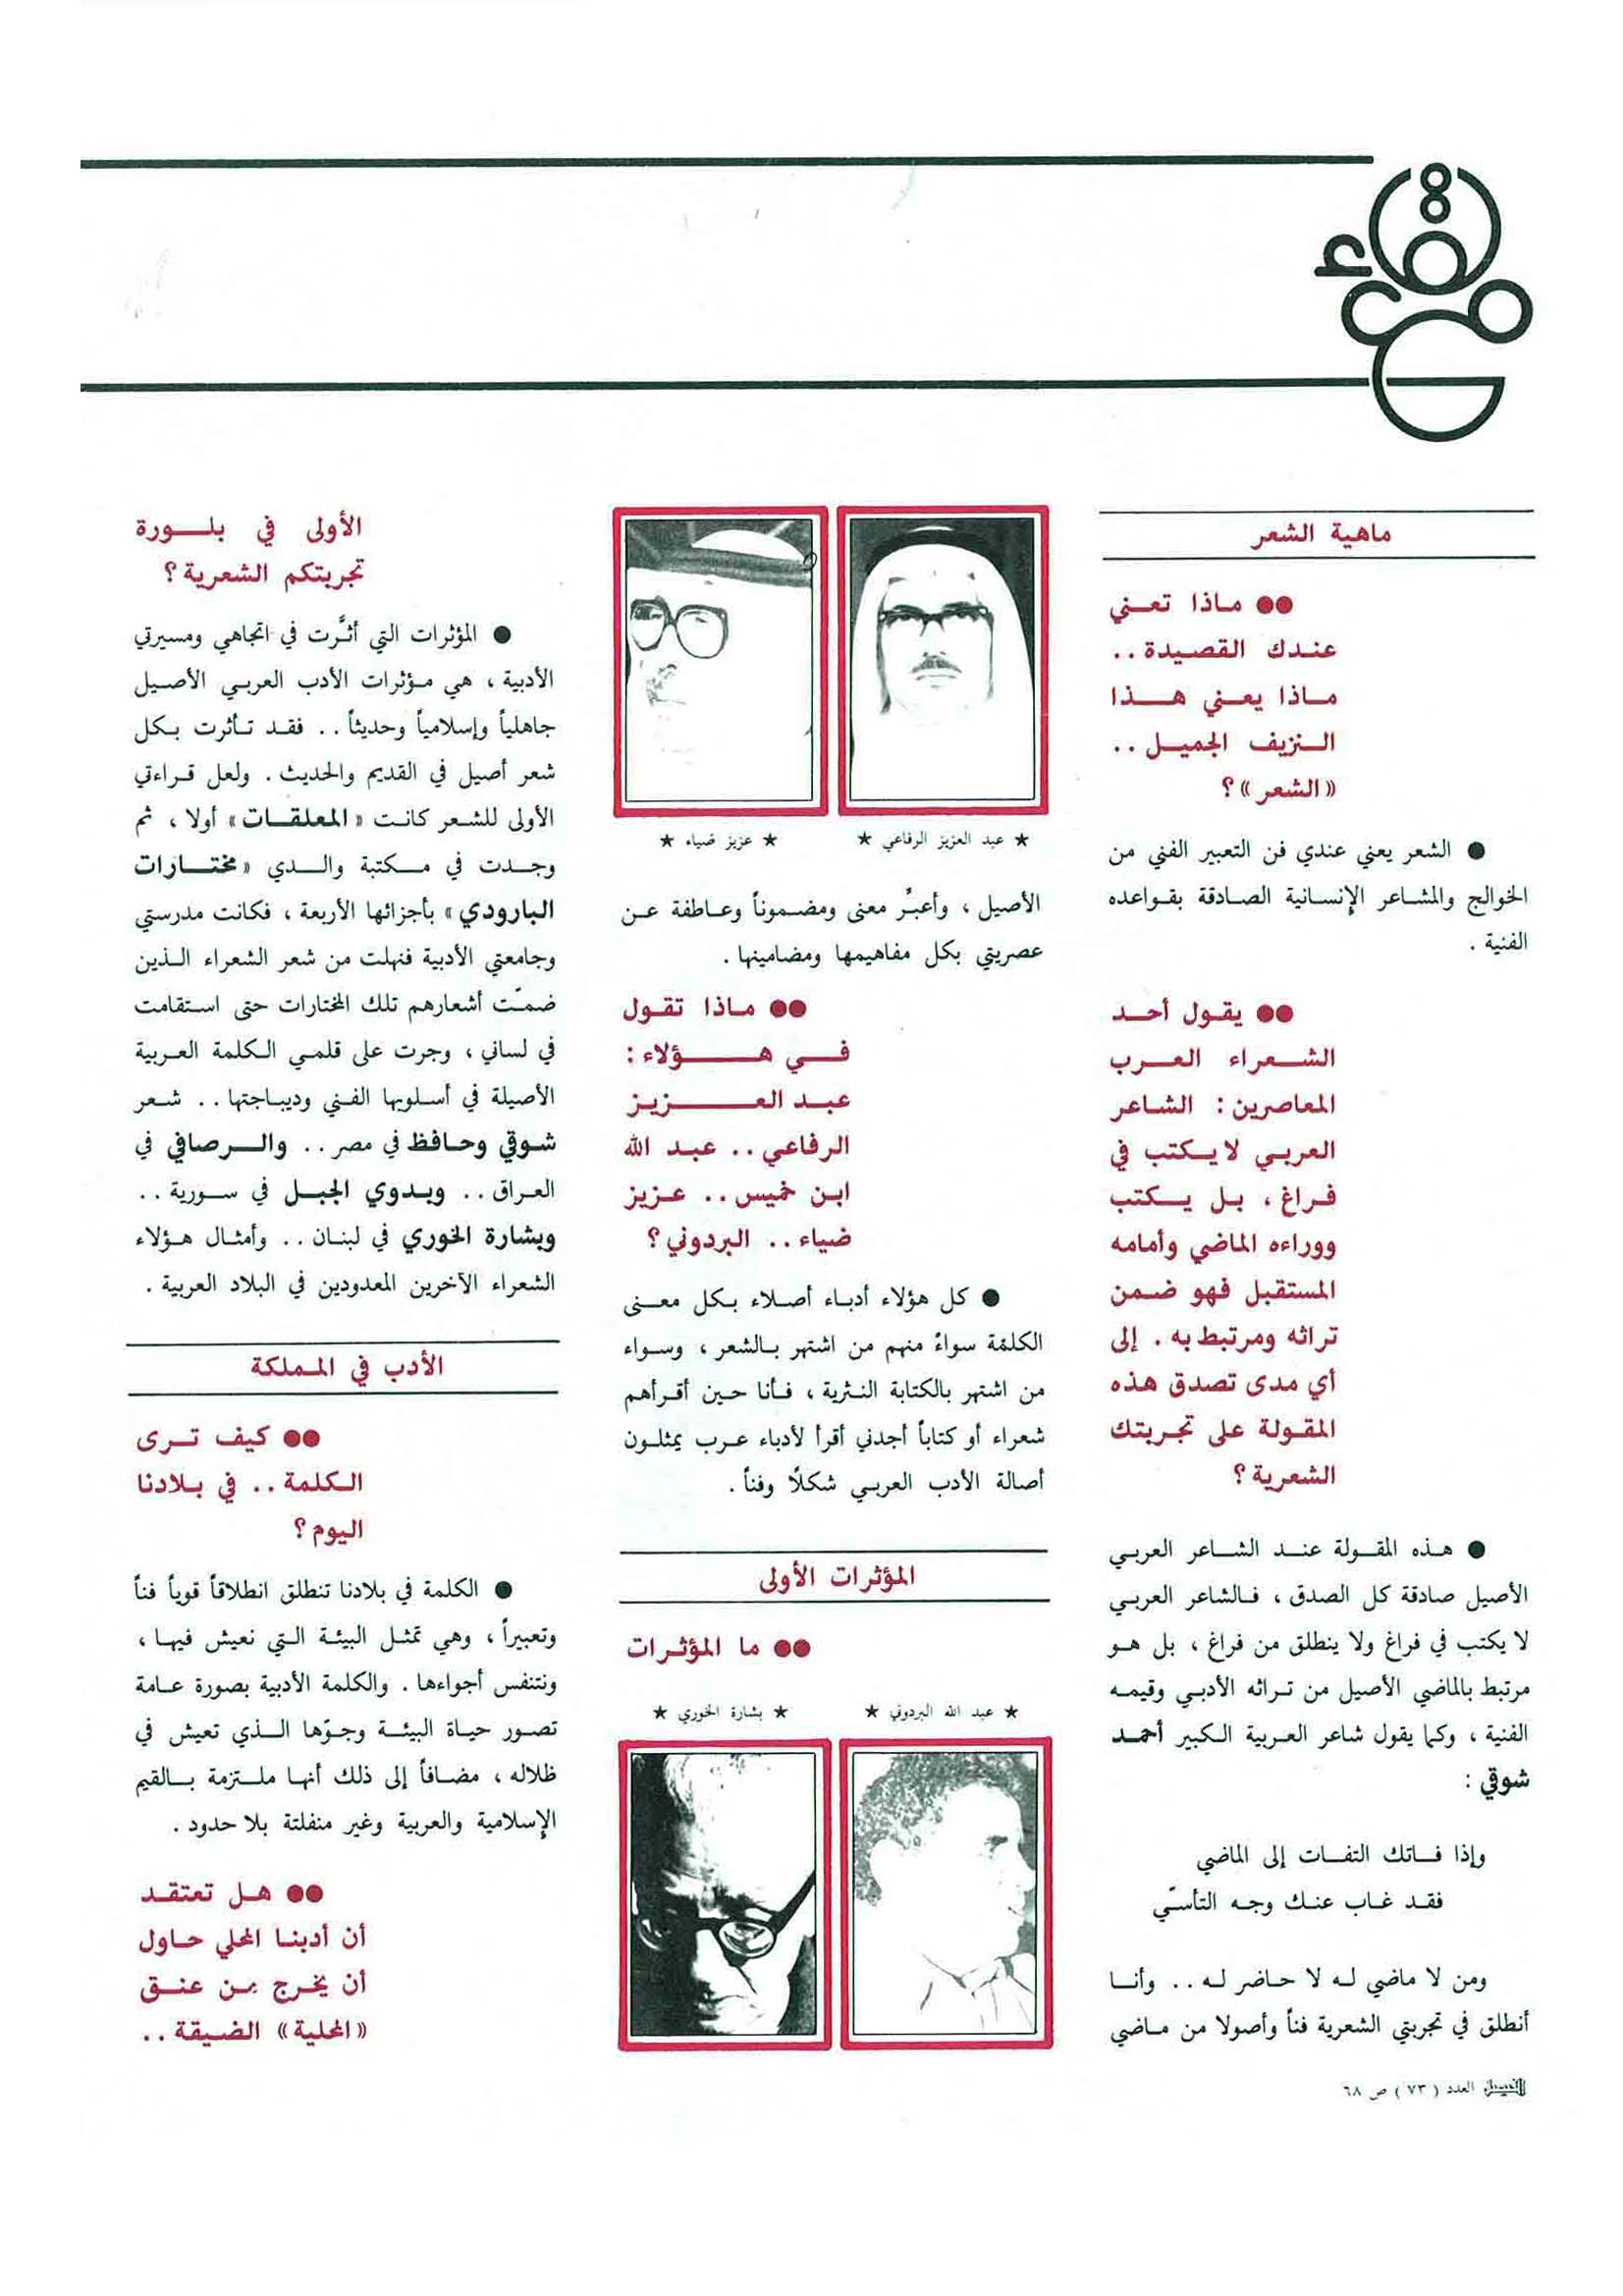 ماهية الشعر
●● ماذا تعني
عندك القصيدة ..
ماذا يعني هذا
النزيف الجميل ..
«الشعر» ؟
● الشعر يعني عندي فن التعبير الفني من
الخوالج والمشاعر الإنسانية الصادقة بقواعده
الفنية .
●● يقول أحد
الشعراء العرب
المعاصرين : الشاعر
العربي لا يكتب في
فراغ ، بل يكتب
ووراءه الماضي وأمامه
المستقبل فهو ضمن
تراثه ومرتبط به . إلى
أي مدى تصدق هذه
المقولة على تجربتك
الشعرية ؟
● هذه المقولة عند الشاعر العربي
الأصيل صادقة كل الصدق ، فالشاعر العربي
لا يكتب في فراغ ولا ينطلق من فراغ ، بل هو
مرتبط بالماضي الأصيل من تراثه الأدبي وقيمه
الفنية ، وكما يقول شاعر العربية الكبير أحمد
شوقي :
وإذا فاتك التفات إلى الماضي
فقد غاب عنك وجه التأسّي
ومن لا ماضي له لا حاضر له .. وأنا
أنطلق في تجربتي الشعرية فناً وأصولا من ماضي
★ عبد العزيز الرفاعي ★
★ عزيز ضياء ★
الأصيل ، وأعبرُّ معنى ومضموناً وعاطفة عن
عصريتي بكل مفاهيمها ومضامينها .
●● ماذا تقول
في هؤلاء :
عبد العزيز
الرفاعي .. عبد الله
ابن خميس .. عزيز
ضياء .. البردوني ؟
● كل هؤلاء أدباء أصلاء بكل معنى
الكلمة سواءً منهم من اشتهر بالشعر ، وسواء
من اشتهر بالكتابة النثرية ، فأنا حين أقرأهم
شعراء أو كتاباً أجدني أقرأ لأدباء عرب يمثلون
أصالة الأدب العربي شكلًا وفناً .
المؤثرات الأولى
●● ما المؤثرات
★ عبد الله البردوني ★
★ بشارة الخوري ★
الأولى في بلورة
تجربتكم الشعرية ؟
● المؤثرات التي أثَّرت في اتجاهي ومسيرتي
الأدبية ، هي مؤثرات الأدب العربي الأصيل
جاهلياً وإسلامياً وحديثاً .. فقد تأثرت بكل
شعر أصيل في القديم والحديث . ولعل قراءتي
الأولى للشعر كانت «المعلقات» أولا ، ثم
وجدت في مكتبة والدي «مختارات
البارودي» بأجزائها الأربعة ، فكانت مدرستي
وجامعتي الأدبية فنهلت من شعر الشعراء الذين
ضمّت أشعارهم تلك المختارات حتى استقامت
في لساني ، وجرت على قلمي الكلمة العربية
الأصيلة في أسلوبها الفني وديباجتها .. شعر
شوقي وحافظ في مصر .. والرصافي في
العراق .. وبدوي الجبل في سورية ..
وبشارة الخوري في لبنان .. وأمثال هؤلاء
الشعراء الآخرين المعدودين في البلاد العربية .
الأدب في المملكة
●● كيف ترى
الكلمة .. في بلادنا
اليوم ؟
● الكلمة في بلادنا تنطلق انطلاقاً قوياً فناً
وتعبيراً ، وهي تمثل البيئة التي نعيش فيها ،
ونتنفس أجواءها . والكلمة الأدبية بصورة عامة
تصور حياة البيئة وجوّها الذي تعيش في
ظلاله ، مضافاً إلى ذلك أنها ملتزمة بالقيم
الإسلامية والعربية وغير منفلتة بلا حدود .
●● هل تعتقد
أن أدبنا المحلي حاول
أن يخرج من عنق
«المحلية» الضيقة ..
الفيصل العدد ( ٧٣ ) ص ٦٨